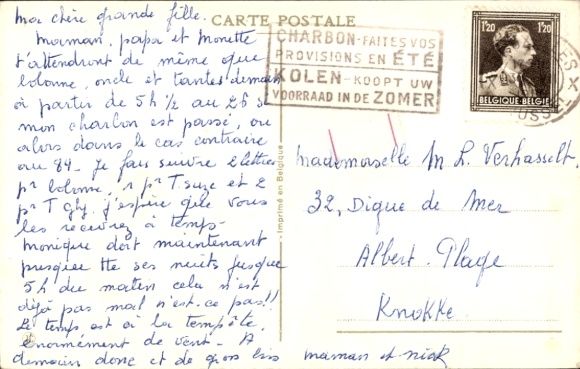 CARTE POSTALE
CHARBON - FAITES VOS
PROVISIONS EN ÉTÉ
KOLEN - KOOPT UW
VOORRAAD IN DE ZOMER
1F20 1F20
BELGIQUE-BELGIE
Ma chère grande fille.
Maman, papa et Monette
t'attendront de même que
bobonne, oncle et tantes demain
à partir de 5h 1/2 au 26 si
mon charbon est passé, ou
alors dans le cas contraire
au 84. Je fais suivre 2 lettres
pr bobonne, 1 pr T. Suze et 2
pr T. Ghg. j'espère que vous
les recevrez à temps -
Monique doit maintenant
presque tte ses nuits jusque
5h du matin cela n'est
déjà pas mal n'est-ce pas!!
Le temps est à la tempête,
énormément de vent - A
demain donc et de gros bis
maman et nick
Imprimé en Belgique
Mademoiselle M. L. Verhasselt.
32, Digue de Mer
Albert-Plage
Knokke.